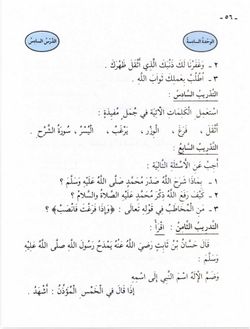 - ٥٦ -
الوحدة السادسة
الدرس السادس
٢ - وَغَفَرْنَا لَكَ ذَنْبَكَ الَّذِي أَثْقَلَ ظَهْرَكَ .
٣ - اُطْلُبْ بِعَمَلِكَ ثَوَابَ اللَّهِ .
التَّدْرِيبُ السَّادِسُ :
اسْتَعْمِلِ الْكَلِمَاتِ الْآتِيَةَ فِي جُمَلٍ مُفِيدَةٍ :
أَثْقَلَ ، فَرَغَ ، الْوِزْرَ ، يَرْغَبُ ، الْيُسْرَ ، سُورَةُ الشَّرْحِ .
التَّدْرِيبُ السَّابِعُ :
أَجِبْ عَنِ الْأَسْئِلَةِ التَّالِيَةِ :
١ - بِمَاذَا شَرَحَ اللَّهُ صَدْرَ مُحَمَّدٍ صَلَّى اللَّهُ عَلَيْهِ وَسَلَّمَ ؟
٢ - كَيْفَ رَفَعَ اللَّهُ ذِكْرَ مُحَمَّدٍ عَلَيْهِ الصَّلَاةُ وَالسَّلَامُ ؟
٣ - مَنِ الْمُخَاطَبُ فِي قَوْلِهِ تَعَالَى : ﴿فَإِذَا فَرَغْتَ فَانْصَبْ﴾ ؟
التَّدْرِيبُ الثَّامِنُ : اقْرَأْ :
قَالَ حَسَّانُ بْنُ ثَابِتٍ رَضِيَ اللَّهُ عَنْهُ يَمْدَحُ رَسُولَ اللَّهِ صَلَّى اللَّهُ عَلَيْهِ
وَسَلَّمَ :
وَضَمَّ الْإِلَهُ اسْمَ النَّبِيِّ إِلَى اسْمِهِ
إِذَا قَالَ فِي الْخَمْسِ الْمُؤَذِّنُ : أَشْهَدُ .